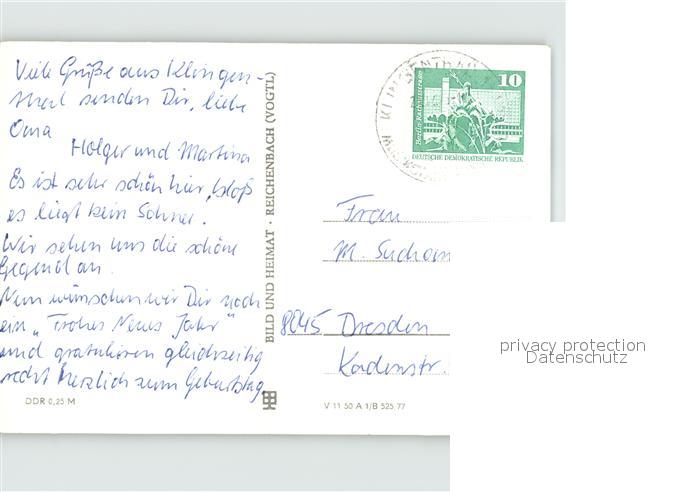 Viele Grüße aus Klingen-
thal senden Dir, liebe
Oma
Holger und Martina
Es ist sehr schön hier, bloß
es liegt kein Schnee.
Wir sehen uns die schöne
Gegend an.
Nun wünschen wir Dir noch
ein „Frohes Neues Jahr"
und gratulieren gleichzeitig
recht herzlich zum Geburtstag.
DDR 0,25 M
BILD UND HEIMAT · REICHENBACH (VOGTL)
10
Berlin
DEUTSCHE DEMOKRATISCHE REPUBLIK
Frau
M.
8045 Dresden
V 11 50 A 1/B 525 77
privacy protection
Datenschutz